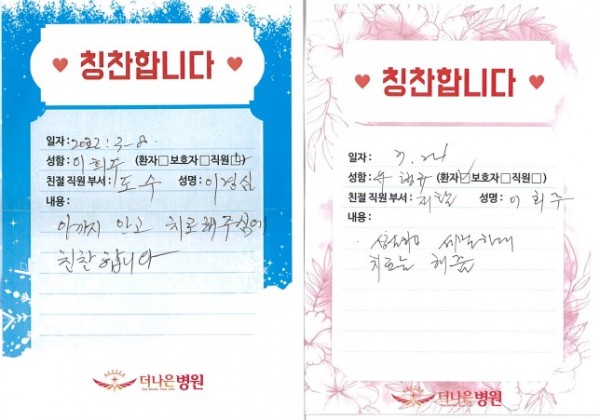 칭찬합니다
일자: 2022. 3. 8.
성함: 이희주 (환자□보호자□직원☑)
친절 직원 부서: 도수 성명: 이정심
내용:
아까지 안고 치료해주심에
친찰합니다
더나은병원
칭찬합니다
일자: 3. 24
성함: (환자☑보호자□직원□)
친절 직원부서: 재활 성명: 이희주
내용:
세밀하게
치료를 해줌
더나은병원